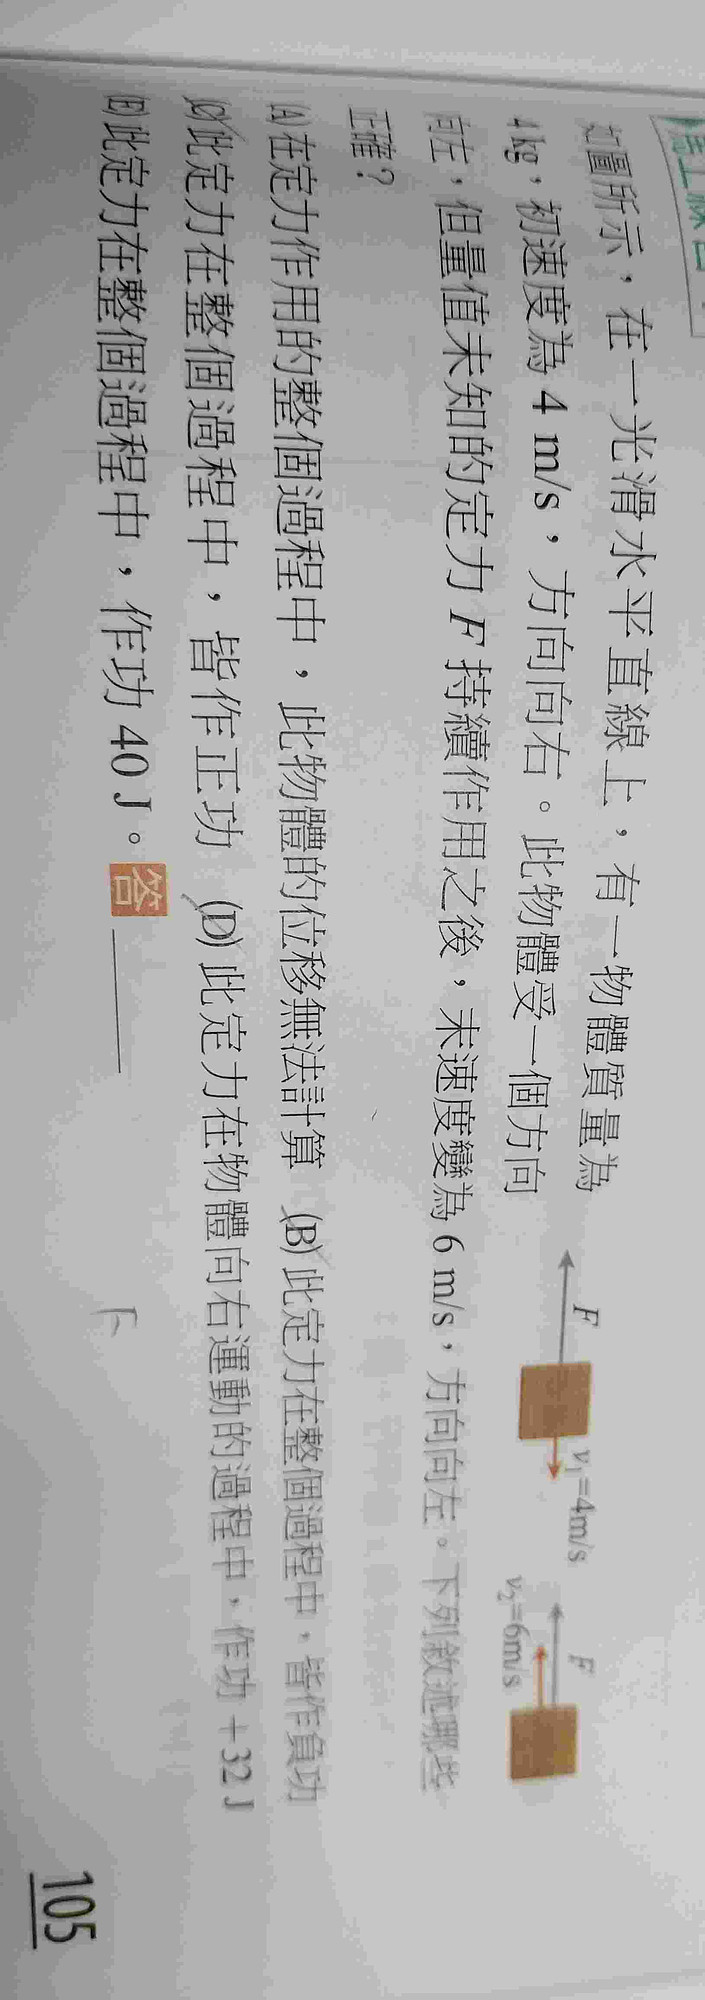 如圖所示，在一光滑水平直線上，有一物體質量為
4 kg，初速度為 4 m/s，方向向右。此物體受一個方向
向左，但量值未知的定力 F 持續作用之後，末速度變為 6 m/s，方向向左。下列敘述哪些
正確？
(A) 在定力作用的整個過程中，此物體的位移無法計算 (B) 此定力在整個過程中，皆作負功
(C) 此定力在整個過程中，皆作正功 (D) 此定力在物體向右運動的過程中，作功 +32 J
(E) 此定力在整個過程中，作功 40 J。答
F
v₁=4m/s
F
v₂=6m/s
105